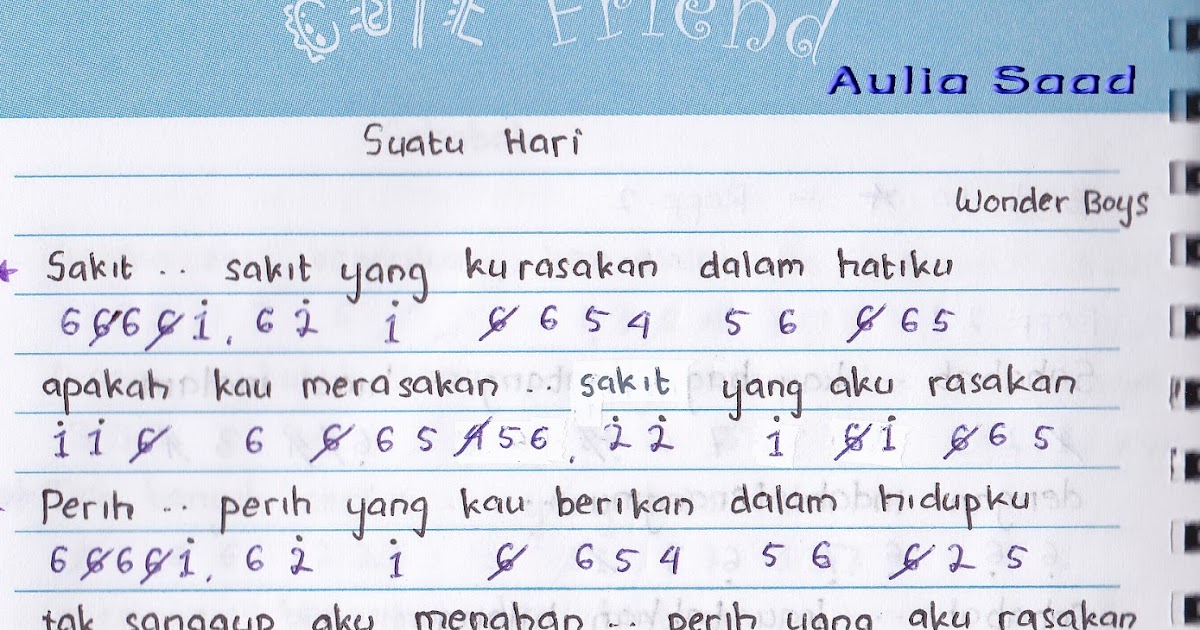 Cute Friend
Aulia Saad
Suatu Hari
Wonder Boys
Sakit .. sakit yang ku rasakan dalam hatiku
6 6̸ 6 6̸ i . 6 2̇ i 6̸ 6 5 4 5 6 6̸ 6 5
apakah kau merasakan .. sakit yang aku rasakan
i i 6̸ 6 6̸ 6 5 4̸ 5 6 . 2̇ 2̇ i 6̸ i 6̸ 6 5
Perih .. perih yang kau berikan dalam hidupku
6 6̸ 6 6̸ i . 6 2̇ i 6̸ 6 5 4 5 6 6̸ 2 5
tak sanggup aku menahan .. perih yang aku rasakan